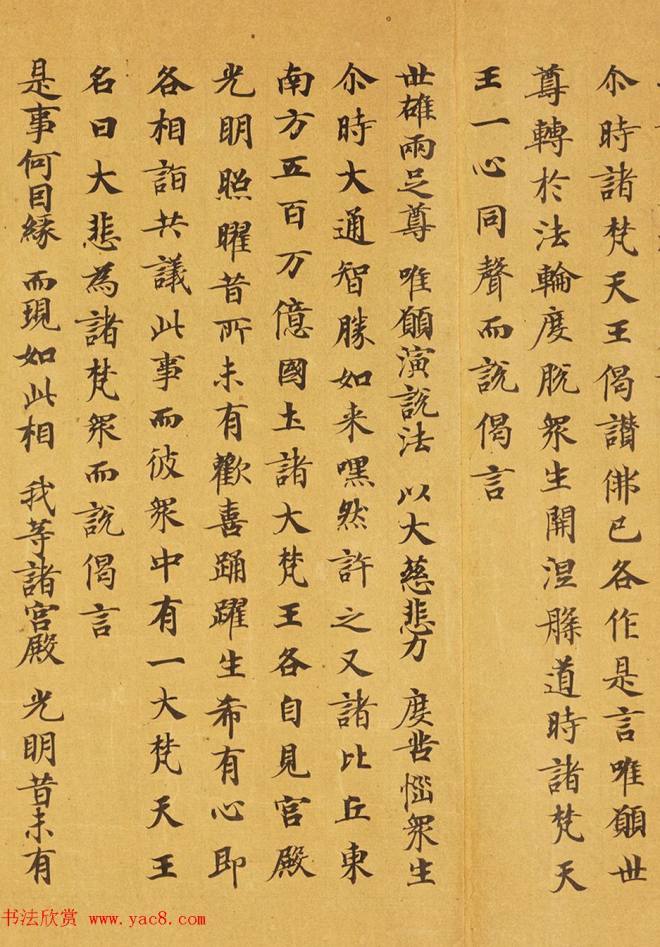 尒時諸梵天王偈讃佛已各作是言唯願世
尊轉於法輪度脫衆生開涅槃道時諸梵天
王一心同聲而說偈言
世雄兩足尊 唯願演說法 以大慈悲力 度苦惱衆生
尒時大通智勝如来嘿然許之又諸比丘東
南方五百万億國土諸大梵王各自見宮殿
光明照曜昔所未有歡喜踊躍生希有心即
各相詣共議此事而彼衆中有一大梵天王
名曰大悲為諸梵衆而說偈言
是事何因緣 而現如此相 我等諸宮殿 光明昔未有
书法欣赏 www.yac8.com